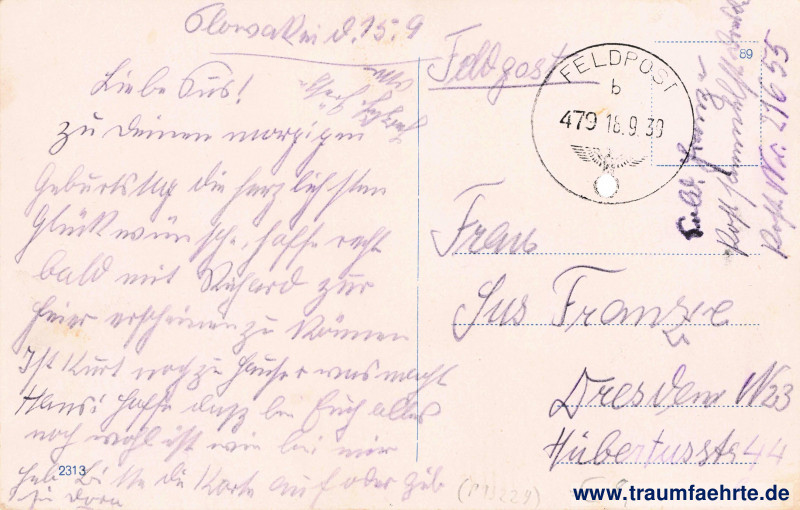 Slowakei d. 15.9
Liebe Sus!
zu deinen morgigen
Geburtstag die herzlichsten
Glückwünsche, hoffe recht
bald mit Richard zur
Feier erscheinen zu können
Ist Kurt noch zu Hause was macht
Hansi hoffe dass bei Euch alles
noch wohl ist wie bei mir
heb Bitte die Karte auf oder gib
sie Dora
2313
Feldpost
FELDPOST
b
479 18.9.39
89
Sold. Franze
Postsammelstelle Dresden
Post Nr. 21655
Frau
Sus Franze
Dresden N23
Hubertusstr 44
www.traumfaehrte.de